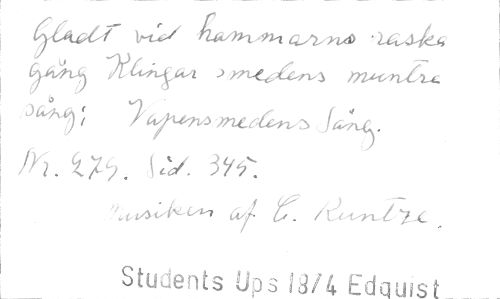 Gladt vid hammarns raska
gång Klingar smedens muntra
sång; Vapensmedens Sång.
Nr. 279. Sid. 345.
Musiken af C. Kuntze.
Students Ups 1874 Edquist